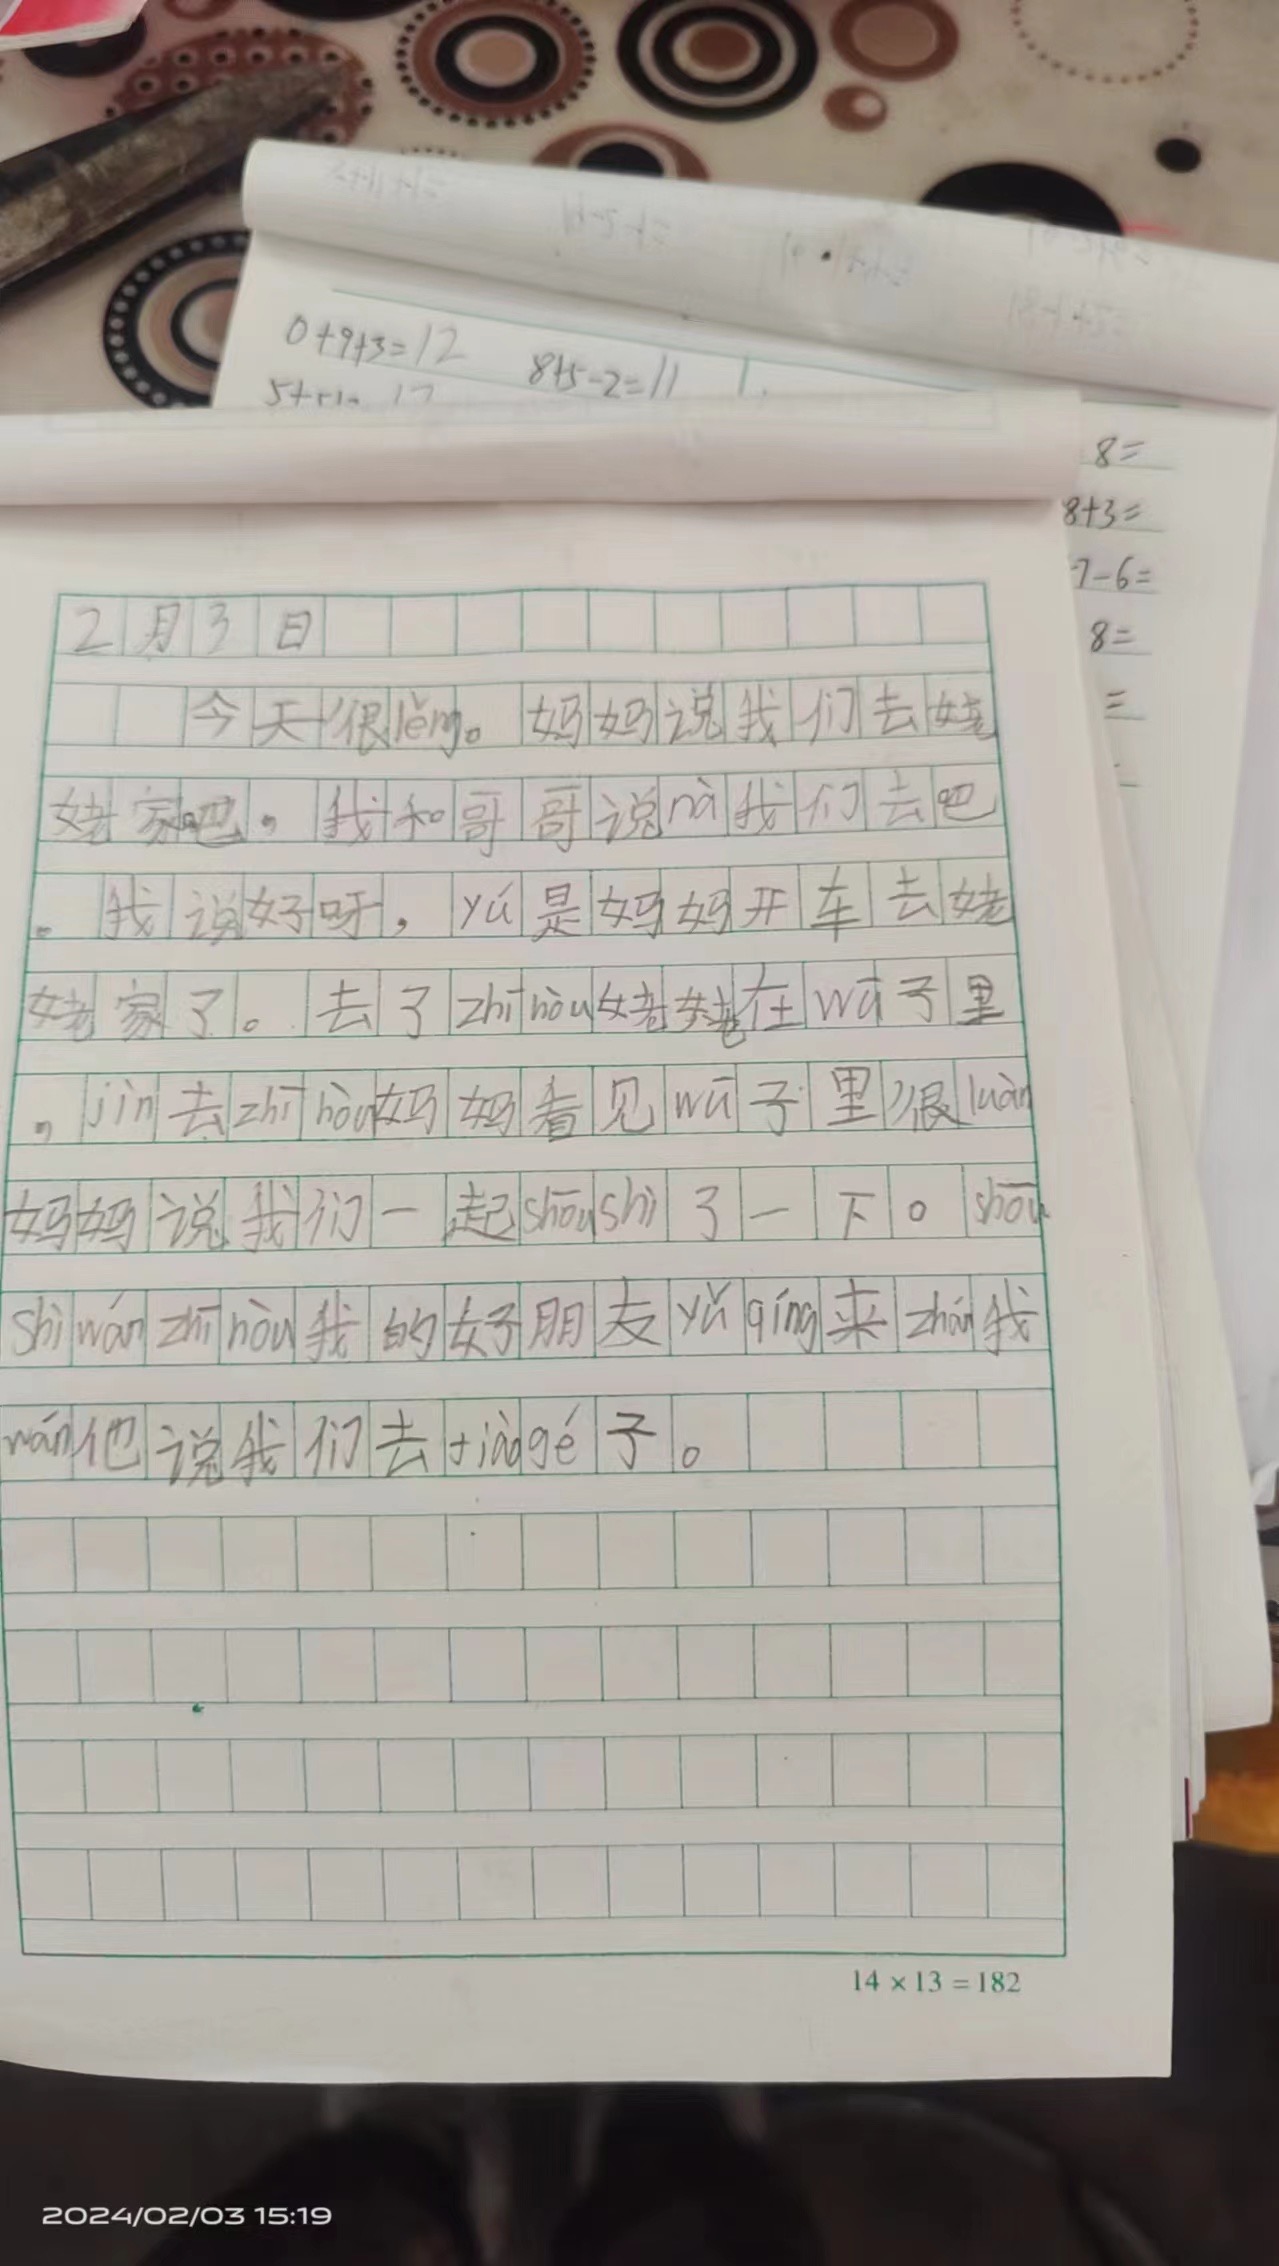 0+9+3=12
8+5-2=11
8=
8+3=
7-6=
8=
=
2月3日
今天很lěng。妈妈说我们去姥
姥家吧，我和哥哥说nà我们去吧
。我说好呀，yú是妈妈开车去姥
姥家了。去了zhī hòu姥姥在wū子里
，jìn去zhī hòu妈妈看见wū子里很luàn
妈妈说我们一起shōu shi了一下。shōu
shi wán zhī hòu我的好朋友yǔ qíng来zhǎo我
wán他说我们去tiào gé子。
14×13=182
2024/02/03 15:19